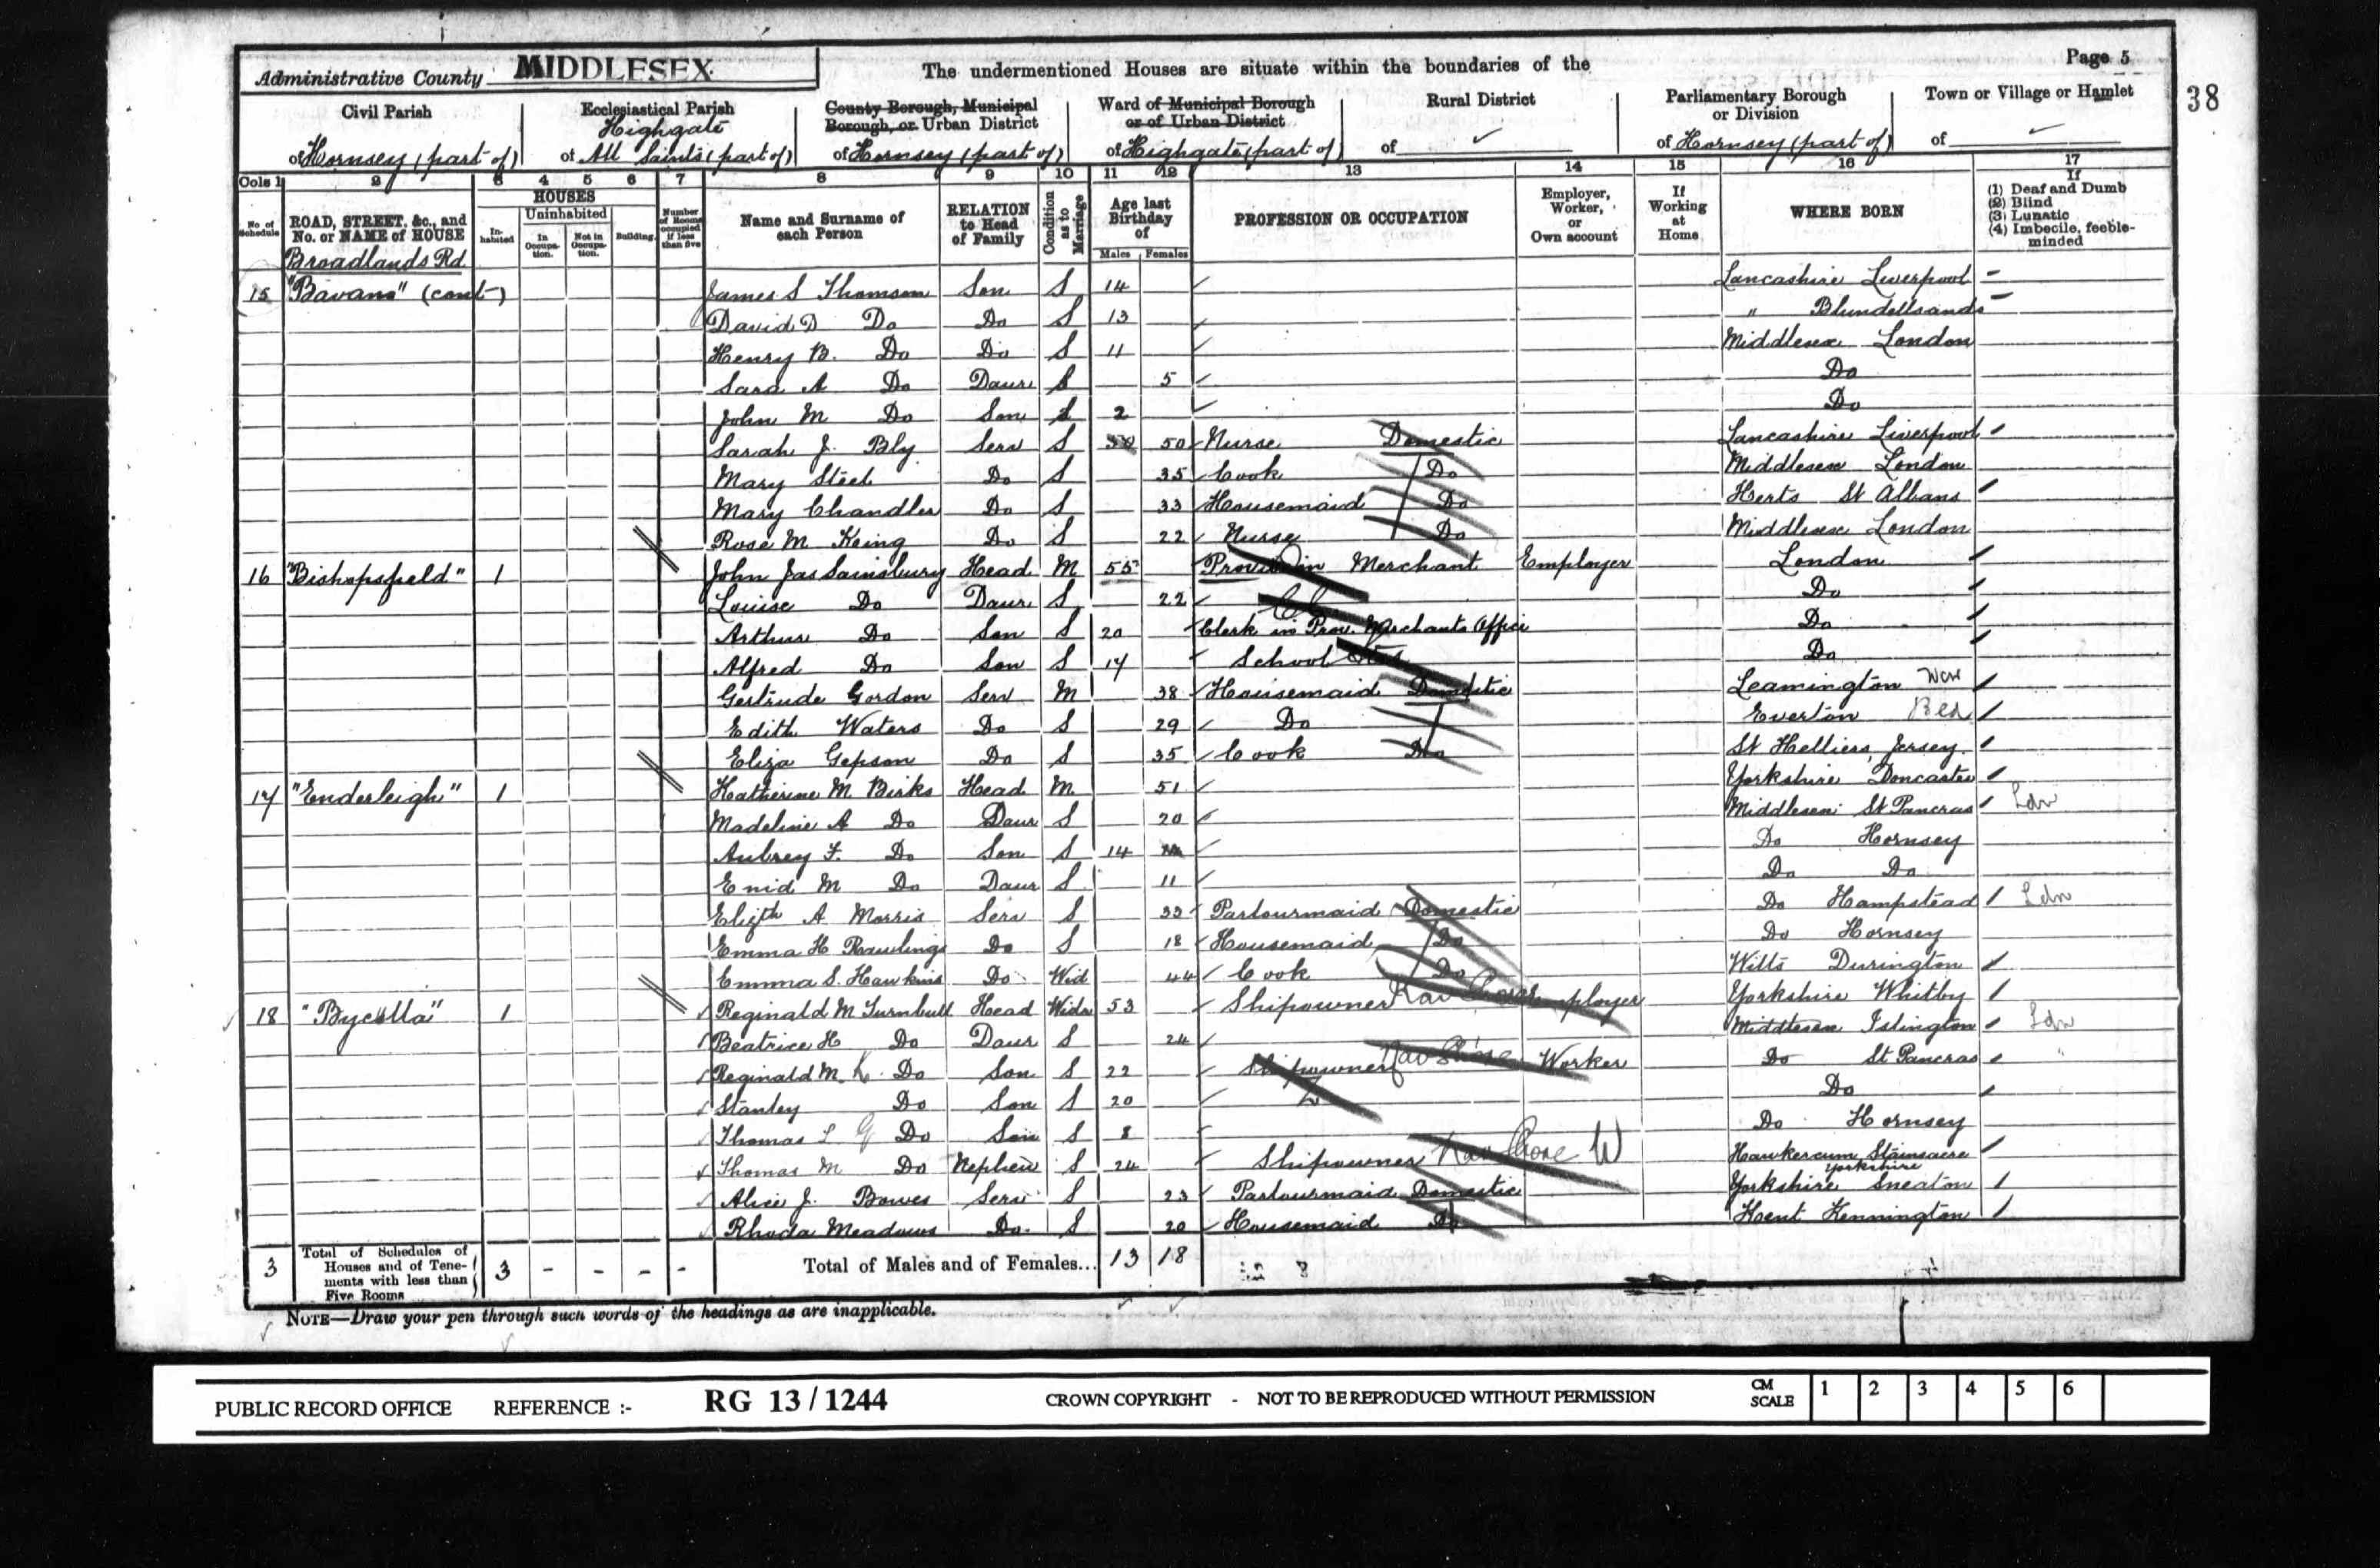 Page 5
Administrative County MIDDLESEX
The undermentioned Houses are situate within the boundaries of the
38
Civil Parish
of Hornsey (part of)
Ecclesiastical Parish
Highgate
of All Saints (part of)
County Borough, Municipal
Borough, or Urban District
of Hornsey (part of)
Ward of Municipal Borough
or of Urban District
of Highgate (part of)
Rural District
of
Parliamentary Borough
or Division
of Hornsey (part of)
Town or Village or Hamlet
of
Cols 1 2 3 4 5 6 7 8 9 10 11 12 13 14 15 16 17
No of Schedule
ROAD, STREET, &c., and No. or NAME of HOUSE
HOUSES
In-habited
Uninhabited
In Occupa-tion.
Not in Occupa-tion.
Building.
Number of Rooms occupied if less than five
Name and Surname of each Person
RELATION to Head of Family
Condition as to Marriage
Age last Birthday of
Males Females
PROFESSION OR OCCUPATION
Employer, Worker, or Own account
If Working at Home
WHERE BORN
If
(1) Deaf and Dumb
(2) Blind
(3) Lunatic
(4) Imbecile, feeble-minded
Broadlands Rd
15 "Bavano" (cont) James S Thomson Son S 14 Lancashire Liverpool
David D Do Do S 13 " Blundellsands
Henry B. Do Do S 11 Middlesex London
Sara A Do Daur S 5 Do
John M Do Son S 2 Do
Sarah J. Bly Serv S 50 Nurse Domestic Lancashire Liverpool
Mary Steel Do S 35 Cook Do Middlesex London
Mary Chandler Do S 33 Housemaid Do Herts St Albans
Rose M King Do S 22 Nurse Do Middlesex London
16 "Bishopsfield" 1 John Jas Sainsbury Head M 55 Provision Merchant Employer London
Louise Do Daur S 22 Do
Arthur Do Son S 20 Clerk in Prov. Merchants Office Do
Alfred Do Son S 17 School Do
Gertrude Gordon Serv M 38 Housemaid Domestic Leamington War
Edith Waters Do S 29 Do Everton Bed
Eliza Gepson Do S 35 Cook Do St Helliers, Jersey
17 "Enderleigh" 1 Katherine M. Birks Head M 51 Yorkshire Doncaster
Madeline A Do Daur S 20 Middlesex St Pancras Ldn
Aubrey F. Do Son S 14 Do Hornsey
Enid M Do Daur S 11 Do Do
Elizth A Morris Serv S 33 Parlourmaid Domestic Do Hampstead Ldn
Emma H Rawlings Do S 18 Housemaid Do Do Hornsey
Emma S. Hawkins Do Wid 44 Cook Do Wilts Durrington
18 "Byculla" 1 Reginald M Turnbull Head Widr 53 Shipowner Employer Yorkshire Whitby
Beatrice H Do Daur S 24 Middlesex Islington Ldn
Reginald M. K. Do Son S 22 Shipowner Worker Do St Pancras "
Stanley Do Son S 20 Do
Thomas L G Do Son S 8 Do Hornsey
Thomas M Do Nephew S 24 Shipowner W Hawkercum Stainsacre Yorkshire
Alice J. Bowes Serv S 23 Parlourmaid Domestic Yorkshire Sneaton
Rhoda Meadows Do S 20 Housemaid Do Kent Kennington
3 Total of Schedules of Houses and of Tene-ments with less than Five Rooms 3 - - - - Total of Males and of Females... 13 18
NOTE—Draw your pen through such words of the headings as are inapplicable.
PUBLIC RECORD OFFICE REFERENCE :- RG 13 / 1244 CROWN COPYRIGHT - NOT TO BE REPRODUCED WITHOUT PERMISSION CM SCALE 1 2 3 4 5 6